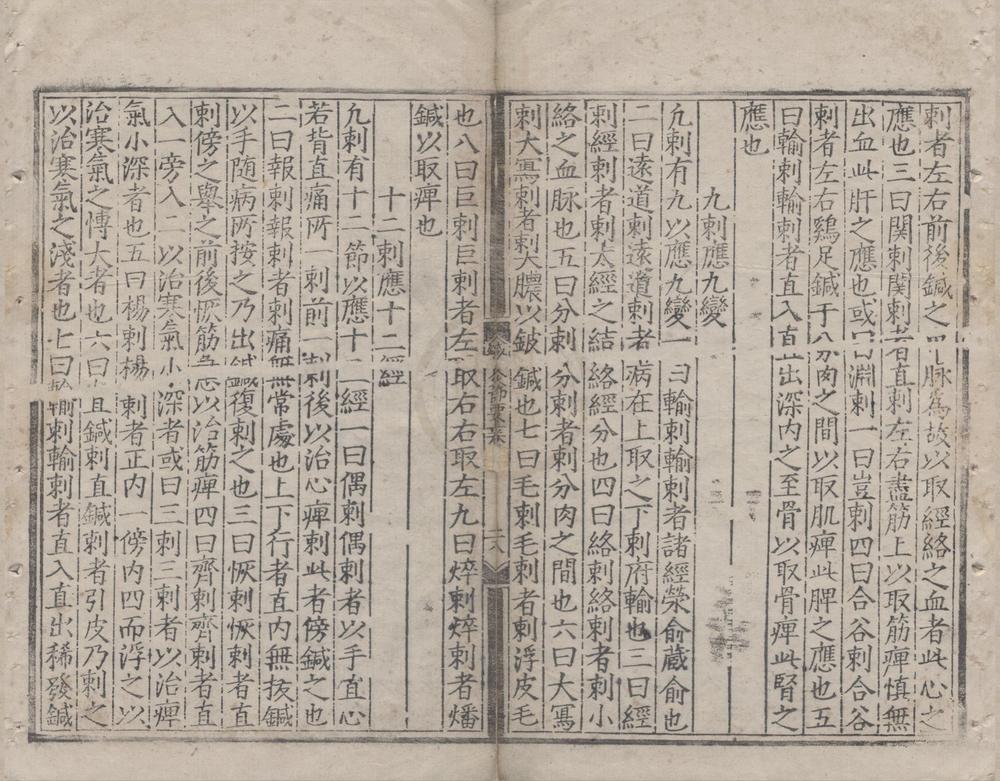 刺者左右前後鍼之中脉爲故以取經絡之血者此心之
應也三曰関刺関刺者直刺左右盡筋上以取筋痺慎無
出血此肝之應也或曰淵刺一曰豈刺四曰合谷刺合谷
刺者左右鷄足鍼于分肉之間以取肌痺此脾之應也五
曰輸刺輸刺者直入直出深內之至骨以取骨痺此腎之
應也
九刺應九變
凢刺有九以應九變一曰輸刺輸刺者諸經滎俞藏俞也
二曰遠道刺遠道刺者病在上取之下刺府輸也三曰經
刺經刺者刺太經之結絡經分也四曰絡刺絡刺者刺小
絡之血脉也五曰分刺分刺者刺分肉之間也六曰大冩
刺大冩刺者刺大膿以鈹鍼也七曰毛刺毛刺者刺浮皮毛
也八曰巨刺巨刺者左取右右取左九曰焠刺焠刺者燔
鍼以取痺也
十二刺應十二經
凢刺有十二節以應十二經一曰偶刺偶刺者以手直心
若背直痛所一刺前一刺後以治心痺刺此者傍鍼之也
二曰報刺報刺者刺痛無常處也上下行者直内無抜鍼
以手随病所按之乃出鍼復刺之也三曰恢刺恢刺者直
刺傍之舉之前後恢筋急以治筋痺四曰齊刺齊刺者直
入一旁入二以治寒氣小深者或曰三刺三刺者以治痺
氣小深者也五曰楊刺楊刺者正内一傍内四而浮之以
治寒氣之愽大者也六曰直鍼刺直鍼刺者引皮乃刺之
以治寒氣之淺者也七曰輸刺輸刺者直入直出稀發鍼